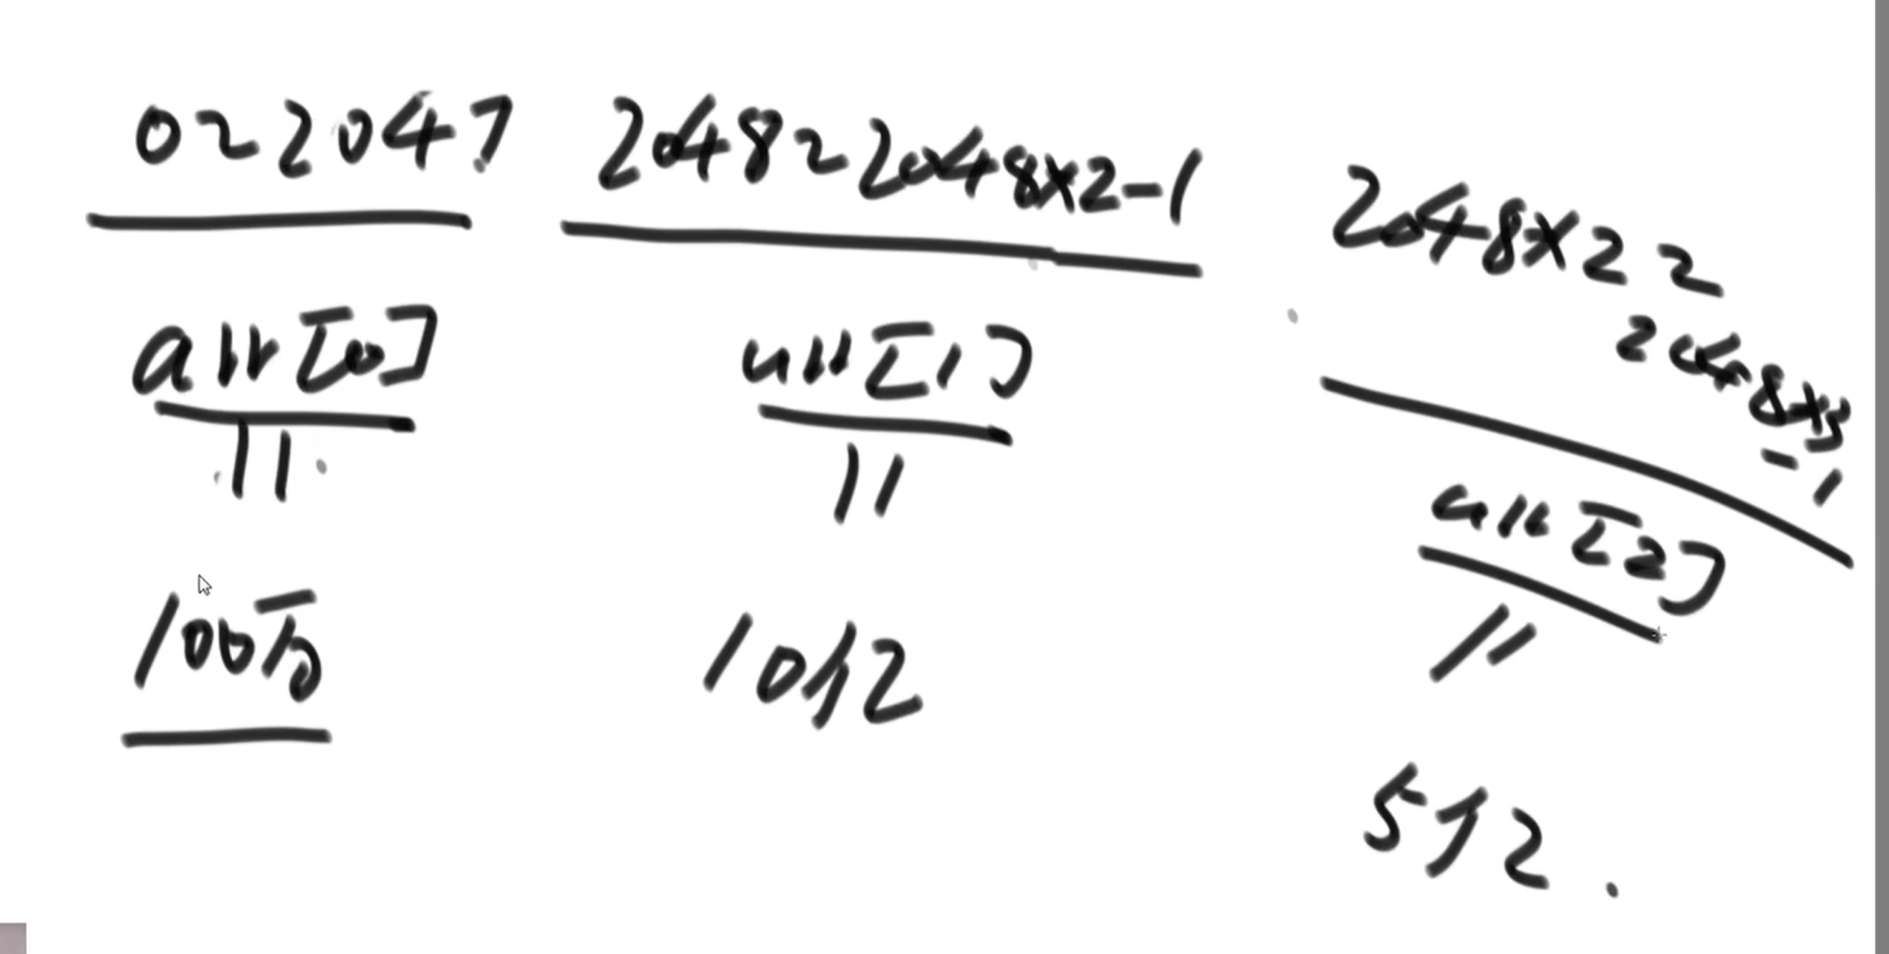 0~2047
arr[0]
||
100万
2048~2048×2-1
arr[1]
||
10亿
2048×2~
2048×3
-1
arr[2]
||
512.